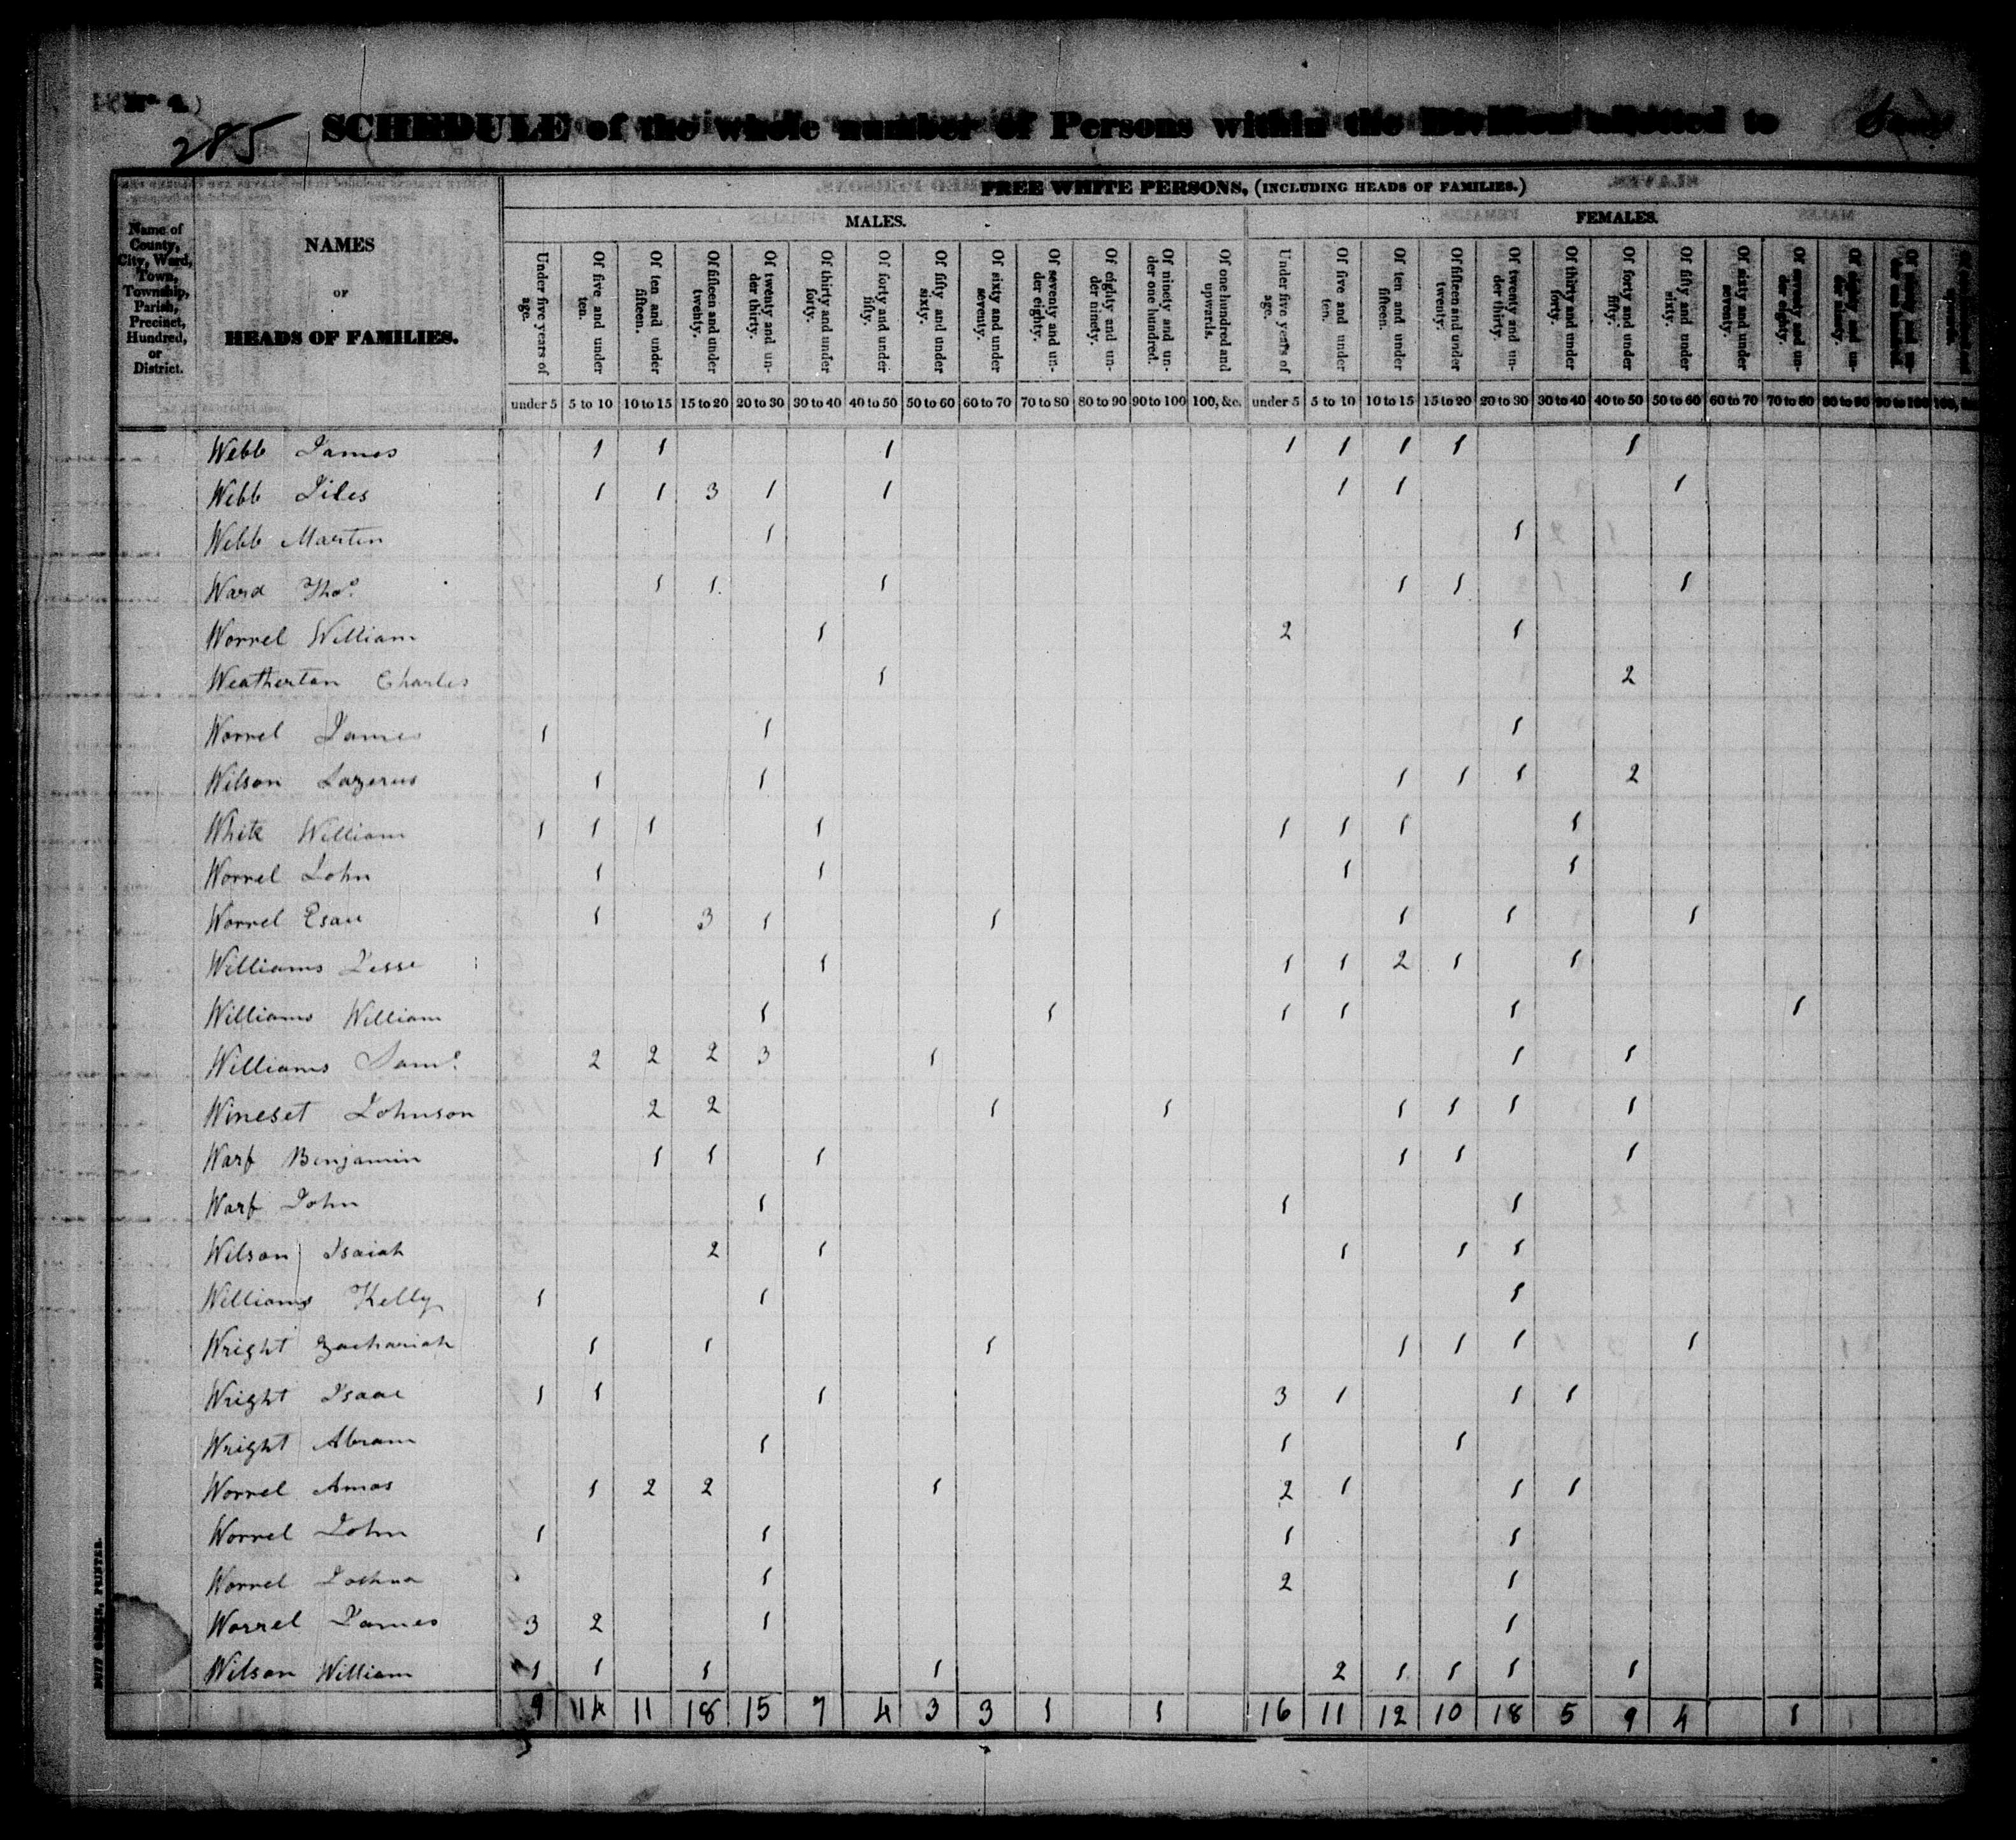 No. 4.
285
SCHEDULE of the whole number of Persons within the Division allotted to
FREE WHITE PERSONS, (INCLUDING HEADS OF FAMILIES.)
MALES. FEMALES.
Name of County, City, Ward, Town, Township, Parish, Precinct, Hundred, or District.
NAMES
OF
HEADS OF FAMILIES.
Under five years of age. Of five and under ten. Of ten and under fifteen. Of fifteen and under twenty. Of twenty and under thirty. Of thirty and under forty. Of forty and under fifty. Of fifty and under sixty. Of sixty and under seventy. Of seventy and under eighty. Of eighty and under ninety. Of ninety and under one hundred. Of one hundred and upwards. Under five years of age. Of five and under ten. Of ten and under fifteen. Of fifteen and under twenty. Of twenty and under thirty. Of thirty and under forty. Of forty and under fifty. Of fifty and under sixty. Of sixty and under seventy. Of seventy and under eighty. Of eighty and under ninety.
under 5 5 to 10 10 to 15 15 to 20 20 to 30 30 to 40 40 to 50 50 to 60 60 to 70 70 to 80 80 to 90 90 to 100 100, &c. under 5 5 to 10 10 to 15 15 to 20 20 to 30 30 to 40 40 to 50 50 to 60 60 to 70 70 to 80 80 to 90 90 to 100 100, &c.
Webb James 1 1 1 1 1 1 1 1
Webb Jiles 1 1 3 1 1 1 1 1
Webb Martin 1 1
Ward Tho. 1 1 1 1 1 1
Worrel William 1 2 1
Weatherton Charles 1 2
Worrel James 1 1 1
Wilson Lazerus 1 1 1 1 1 2
White William 1 1 1 1 1 1 1 1
Worrel John 1 1 1 1
Worrel Esau 1 3 1 1 1 1 1
Williams Jesse 1 1 1 2 1 1
Williams William 1 1 1 1 1 1
Williams Saml. 2 2 2 3 1 1 1
Wineset Johnson 2 2 1 1 1 1 1 1
Warf Benjamin 1 1 1 1 1 1
Warf John 1 1 1
Wilson Isaiah 2 1 1 1 1
Williams Kelly 1 1 1
Wright Zachariah 1 1 1 1 1 1 1
Wright Isaac 1 1 1 3 1 1 1
Wright Abram 1 1 1
Worrel Amos 1 2 2 1 2 1 1 1
Worrel John 1 1 1 1
Worrel Joshua 1 2 1
Worrel James 3 2 1 1
Wilson William 1 1 1 1 2 1 1 1 1
9 14 11 18 15 7 4 3 3 1 1 16 11 12 10 18 5 9 4 1
DUFF GREEN, PRINTER.